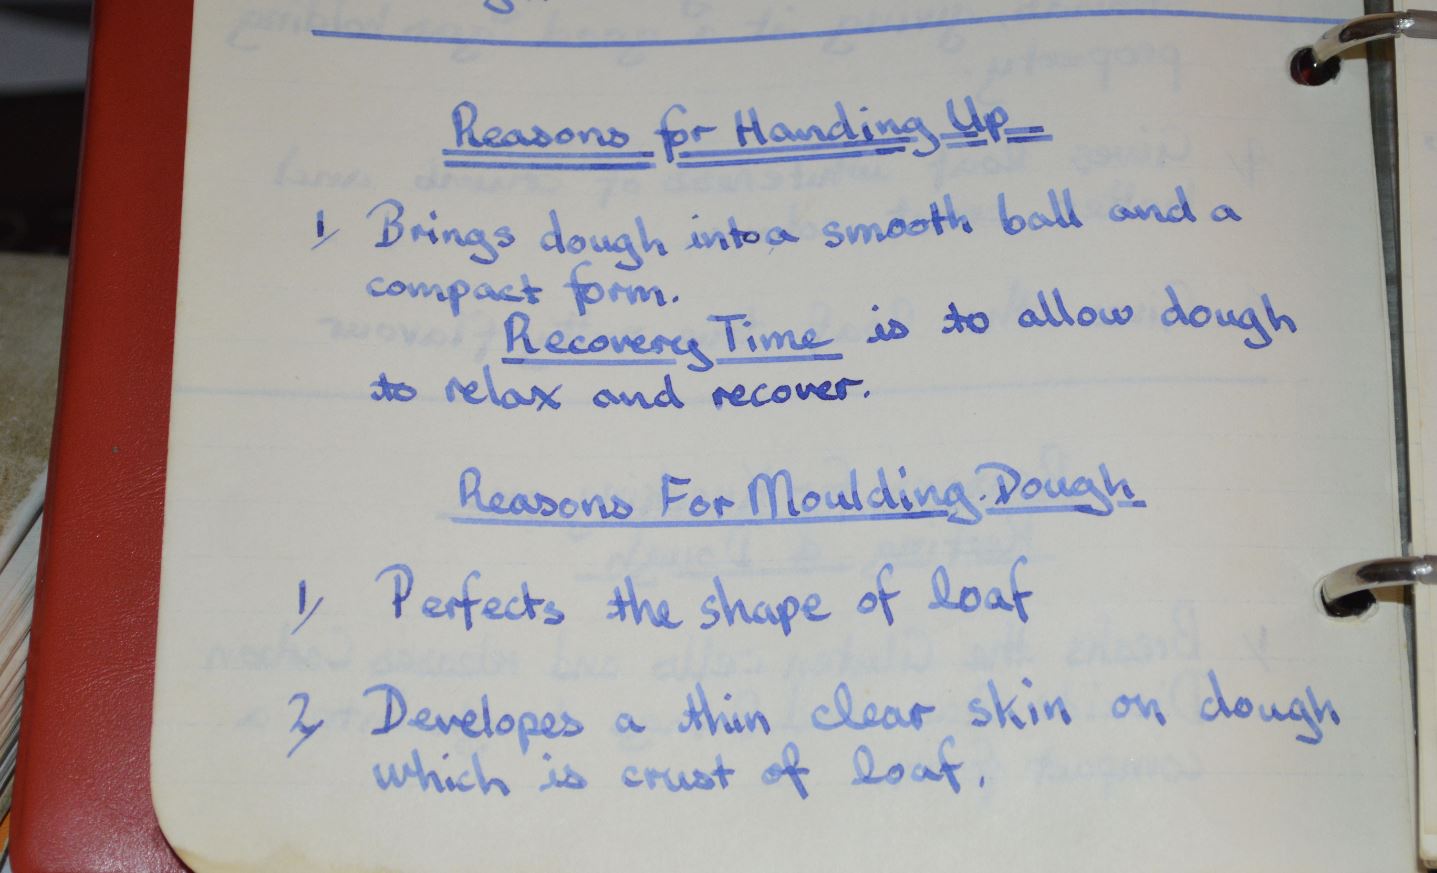 Reasons for Handing Up
1, Brings dough into a smooth ball and a
compact form.
Recovery Time is to allow dough
to relax and recover.
Reasons For Moulding Dough
1, Perfects the shape of loaf
2, Developes a thin clear skin on dough
which is crust of loaf.